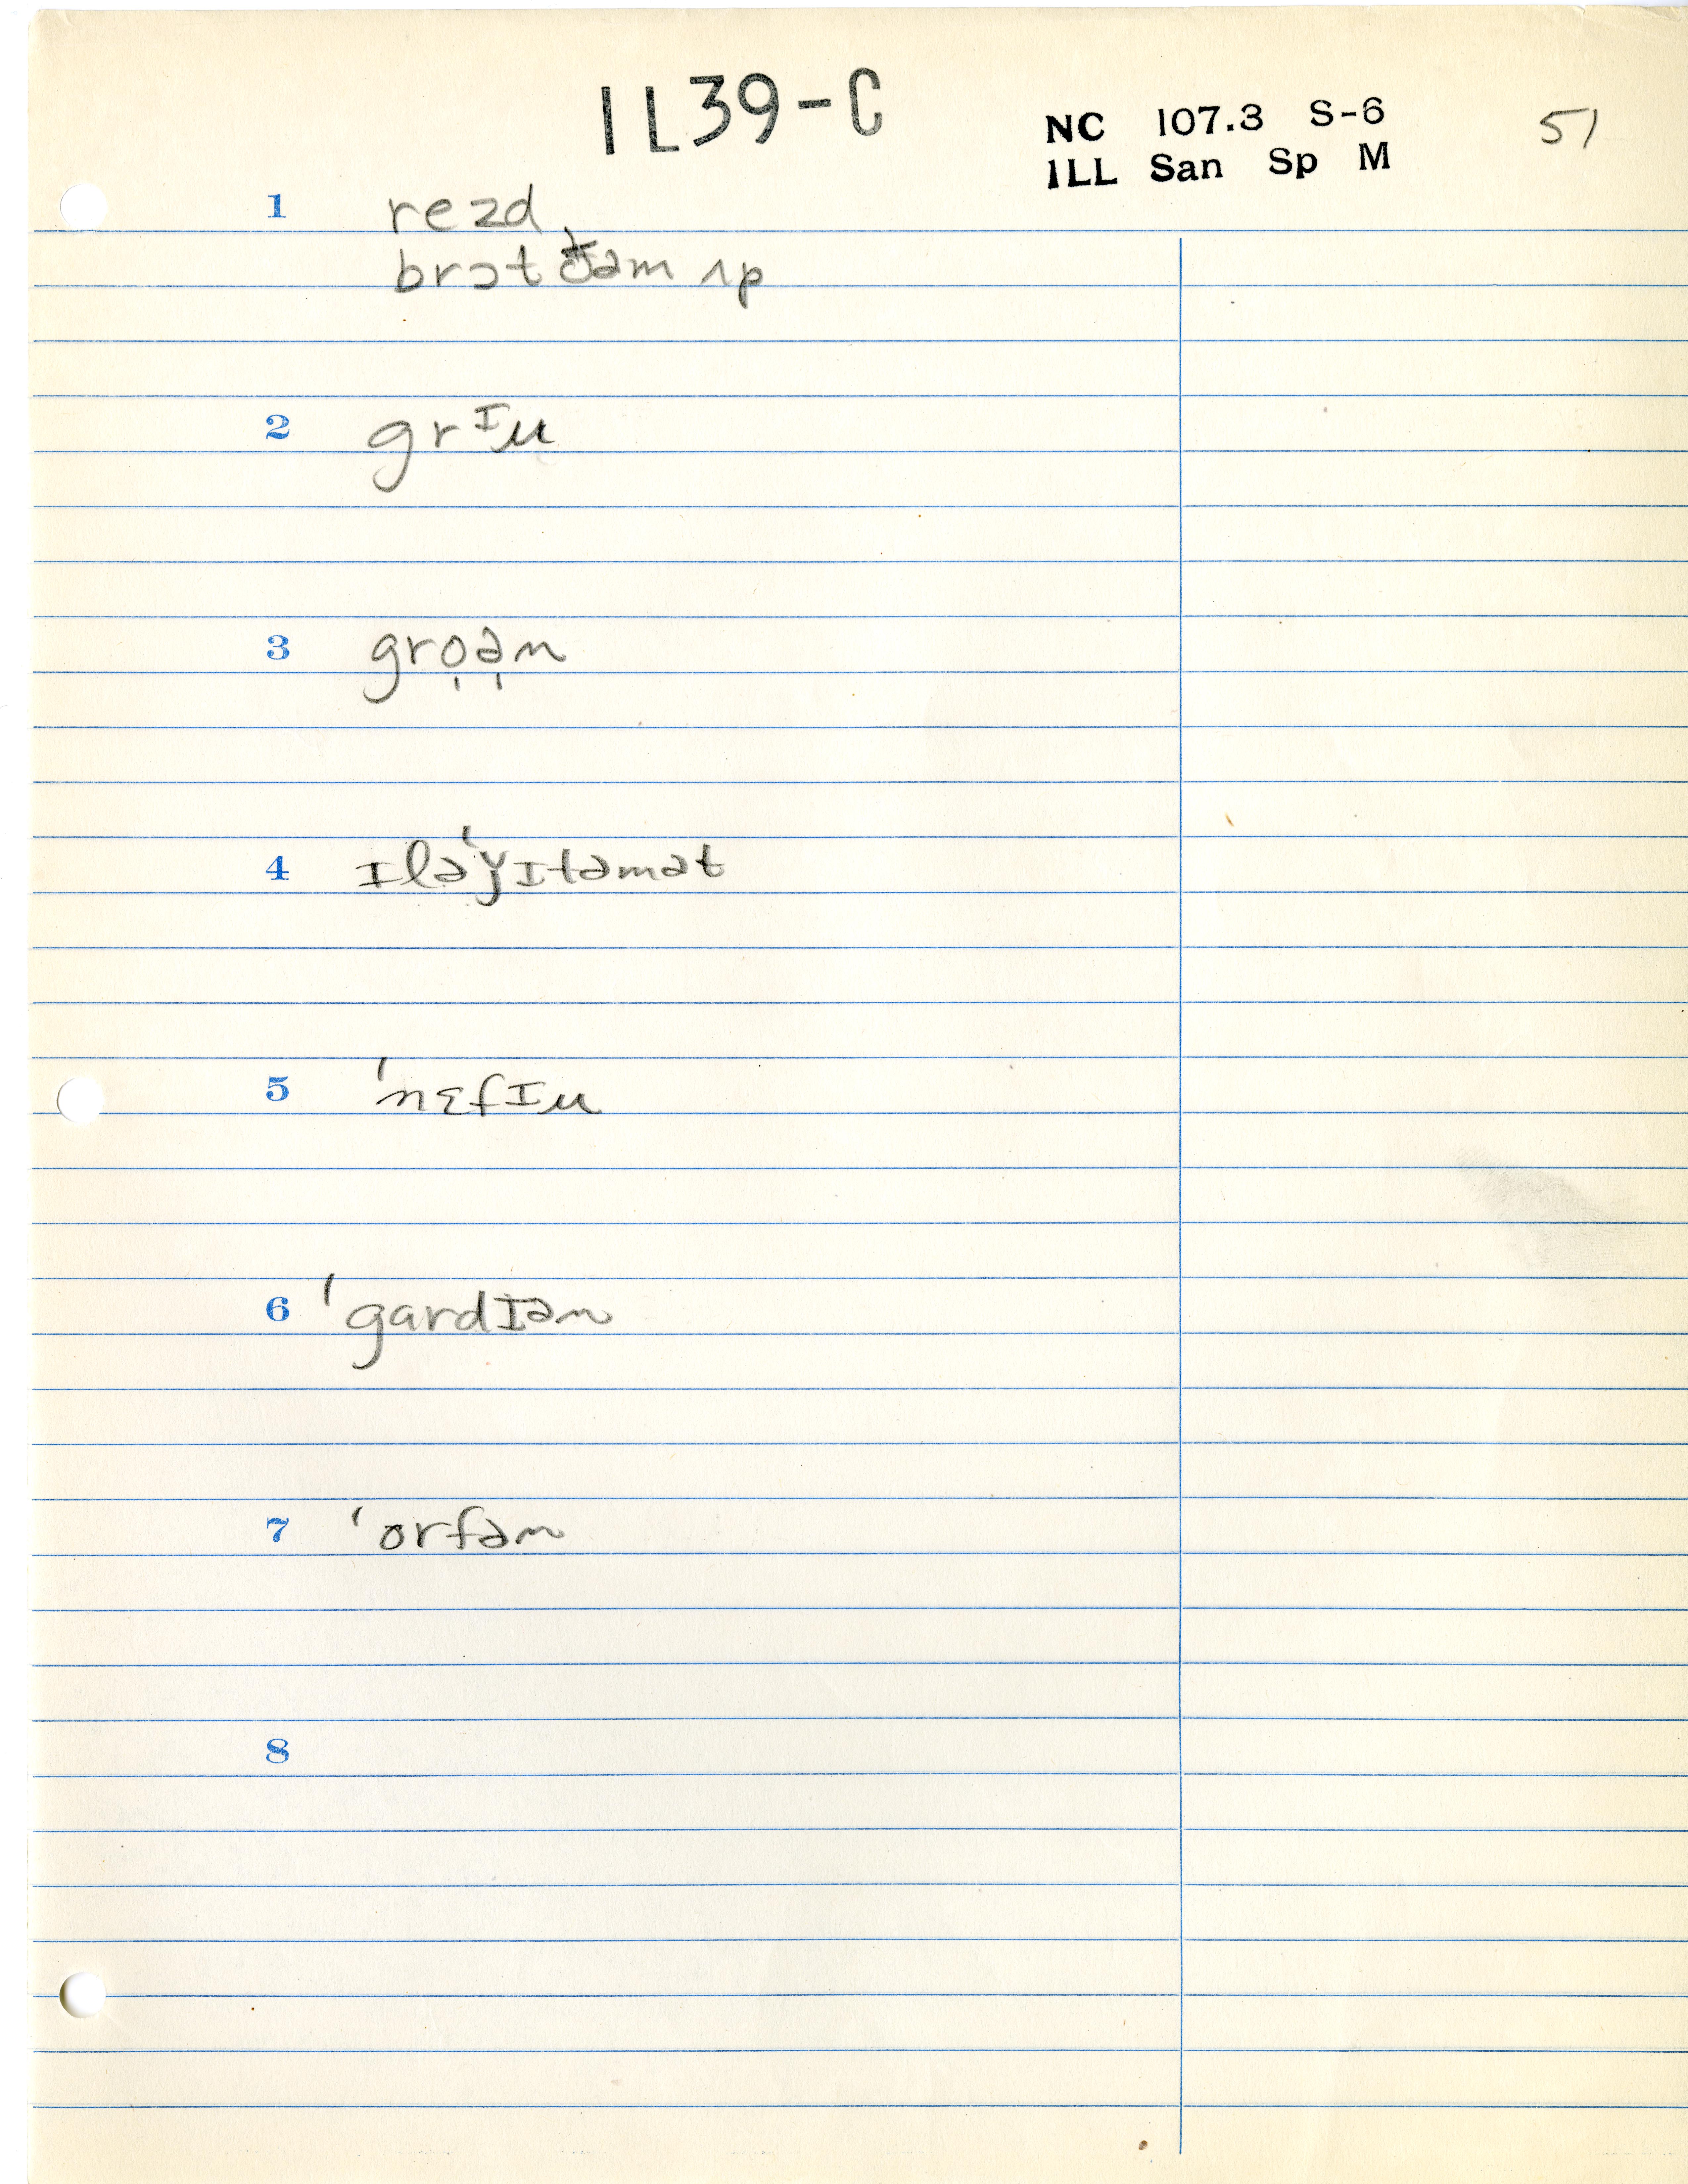 IL39-C
NC 107.3 S-6 51
ILL San Sp M
1 rezd
brɔt ðəm ʌp
2 grᶦu
3 gro̩ə̩n
4 ɪləˈǰɪtəmət
5 ˈnɛfɪu
6 ˈgardɪən
7 ˈɔrfən
8